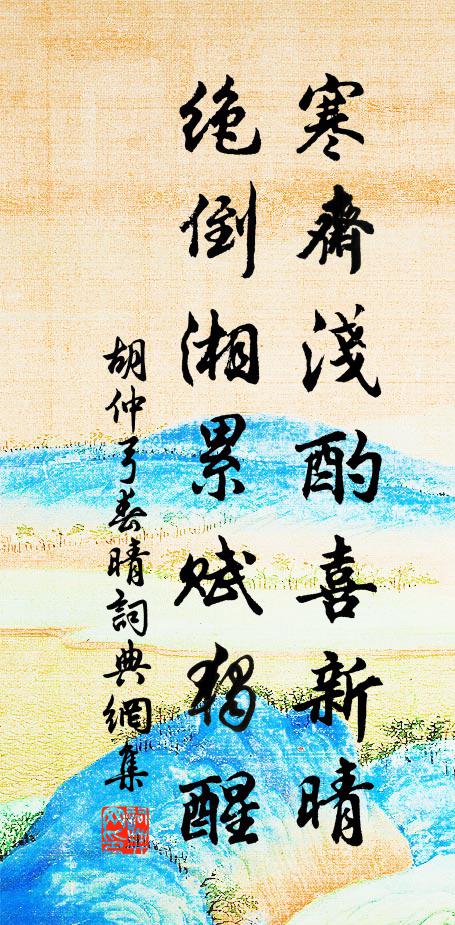 寒齋淺酌喜新晴
絕倒湘累賦獨醒
胡仲弓春晴詞典網集